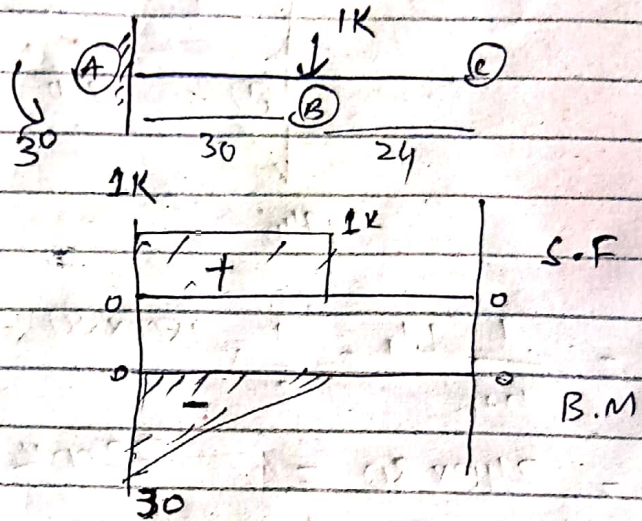 1K
A C
B
30 30 24
1K
1K
+ S.F
0 0
0 0
- B.M
30